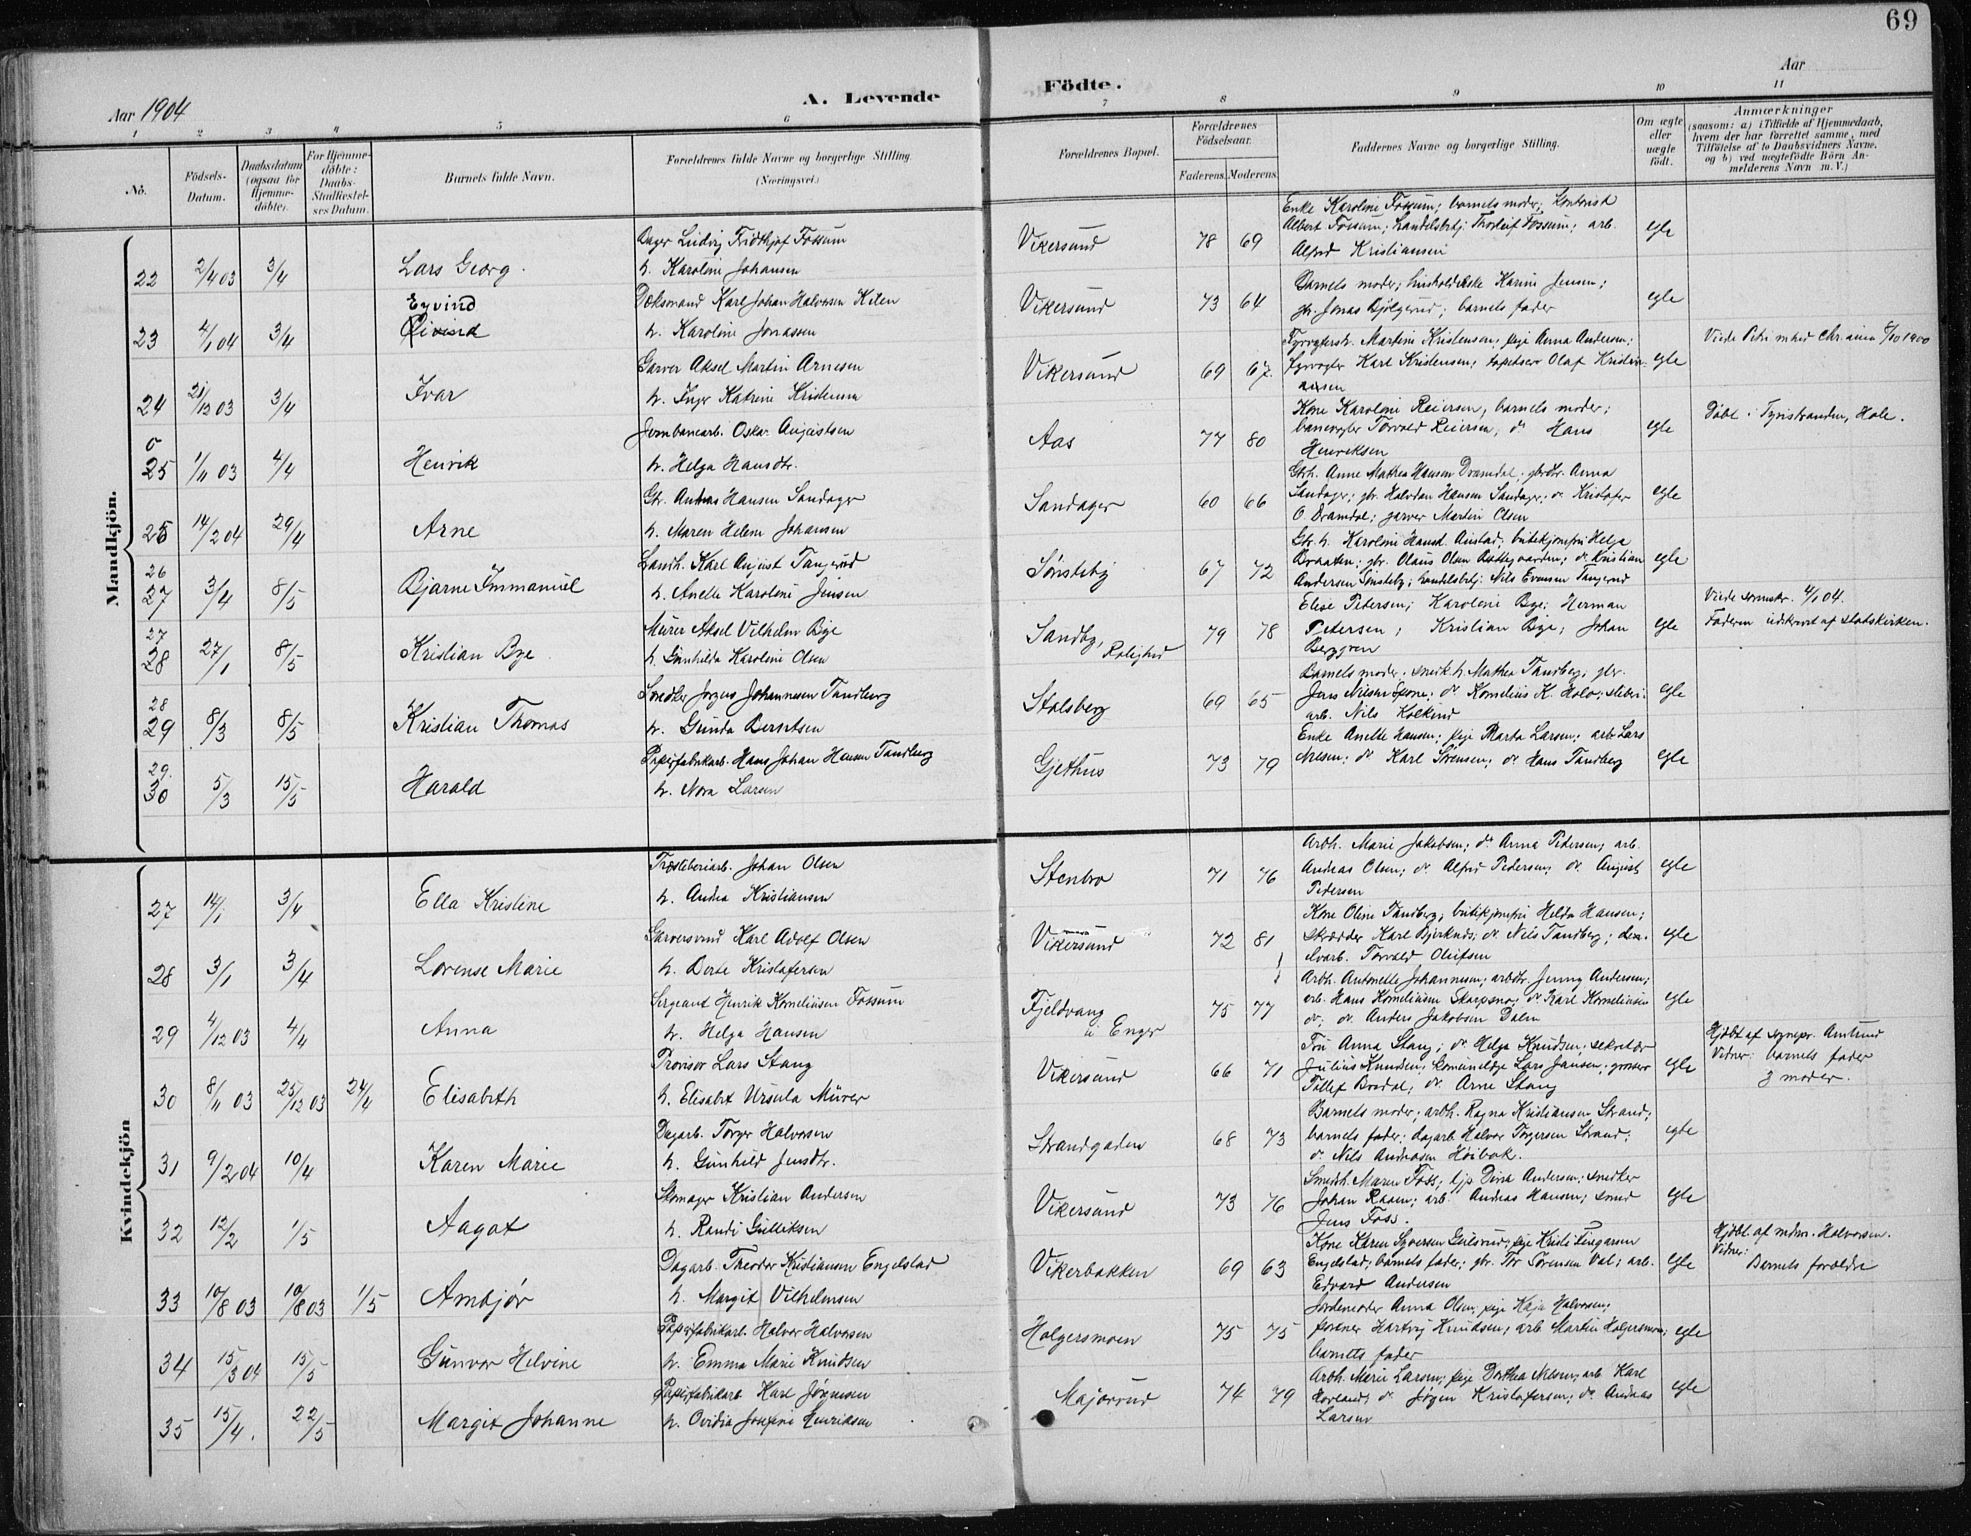 69
Aar 1904
A. Levende
Födte.
Aar
1 2 3 4 5 6 7 8 9 10 11
No.
Födsels-Datum.
Daabsdatum (ogsaa for Hjemme-döbte).
For Hjemme-döbte: Daabs-Stadfæstel-ses Datum.
Barnets fulde Navn.
Forældrenes fulde Navne og borgerlige Stilling.
(Næringsvei.)
Forældrenes Bopæl.
Forældrenes Födselsaar.
Faderens. Moderens.
Faddernes Navne og borgerlige Stilling.
Om ægte eller uægte födt.
Anmærkninger
(saasom: a) i Tilfælde af Hjemmedaab,
hvem der har forrettet samme, med
Tilföielse af to Daabsvidners Navne.
og b) ved uægtefödte Börn An-
melderens Navn m.V.)
Mandkjön.
22 2/4 03 3/4 Lars Georg. Bager Ludvig Fridthjof Fossum
h. Karoline Johansen
Vikersund 78 69 Enke Karoline Fossum; barnets moder; Kontorist
Albert Fossum; handelsbetj. Thorleif Fossum; arb.
Alfred Kristiansen
egte
23 4/1 04 3/4 Eyvind
Øivind
Karl Johan Halvorsen Kilen
h. Karoline Jonassen
Vikersund 73 64 Barnets moder; Karine Jensen;
gbr. Jonas Bjølgerud; barnets fader
egte
24 21/12 03 3/4 Ivar Garver Aksel Martin Arnesen
h. Inger Katrine Kristensen
Vikersund 69 67. Martine Kristensen; pige Anna Andersen;
Fyrvogter Karl Kristensen; Olaf Kristian-
ansen
egte
Viede Petri mhed Chr.ania 6/10 1900
25 1/11 03 4/4 Henrik Jernbanearb. Oskar Augustsen
h. Helga Hansdtr.
Aas 77 80 Kone Karoline Reiersen, barnets moder;
banevogter Torvald Reiersen, do Hans
Henriksen
egte
Døbt i Tyristranden, Hole.
25 14/2 04 29/4 Arne Gbr. Hansen Sandager
h. Maren Helene Johansen
Sandager 60 66 Gbrh. Anne Mathea Hansen Dramdal; gbrdtr. Anna
Sandager; gbr. Halvdan Hansen Sandager; do Kristofer
O Dramdal; garver Martin Olsen
egte
26
27 3/4 8/5 Bjarne Immanuel Landh. Karl August Tangerud
h. Anette Karoline Jensen
Sønsteby 67 72 Gbr. h. Karoline Aurstad; butikjomfru Helga
Braaten; gbr. Olaus Olsen; do Kristian
Andersen Sønsteby; handelsbetj. Nils Evensen Tangerud
egte
27
28 27/1 8/5 Kristian Bye Murer Aksel Vilhelm Bye
h. Gunhilda Karoline Olsen
Sandby, Rolighed 79 78 Elise Petersen; Karoline Bye; Herman
Petersen; Kristian Bye; Johan
Berggren
egte
Viede 4/1 04.
Faderen udtraadt af statskirken.
28
29 8/3 8/5 Kristian Thomas Snedker Jørgen Johannesen Tandberg
h. Gunda Berntsen
Stalsberg 69 65 Barnets moder; snedk. h. Mathea Tandberg; gbr.
Jens Nilsen Spone; do Kornelius K. Holo; sliberi-
arb. Nils Kolkind
egte
29.
30 5/3 15/5 Harald Papirfabrikarb. Hans Johan Hansen Tandberg
h. Nora Larsen
Gjethus 73 79 Enke Anette Hansen; pige Marta Larsen; arb. Lars
Nilsen; do Karl Sørensen; do Hans Tandberg
egte
Kvindekjön
27 14/1 3/4 Ella Kristine Træsliberiarb. Johan Olsen
h. Andrea Kristiansen
Stenbro 71 76 Arbh. Marie Jakobsen; do Anna Pedersen; arb.
Andreas Olsen; do Alfred Pedersen; do August
Pedersen
egte
28 3/1 3/4 Lovense Marie Garversvend Karl Adolf Olsen
h. Berte Kristofersen
Vikersund 72 81 Kone Oline Tandberg; butikjomfru Helda Hansen;
skrædder Karl Bjerknes; do Nils Tandberg;
Torvald Olufsen
egte
29 4/12 03 4/4 Anna Sergeant Henrik Korneliusen Fossum
h. Helga Hansen
Fjeldvang
u. Enger 75 77 Arbh. Antonette Johannesen; arbdtr. Jenny Andersen;
arb. Hans Korneliusen; do Karl Korneliusen
do; do. Anders Jakobsen Dalen
egte
30 8/11 03 25/12 03 24/4 Elisabeth Provisor Lars Stang
h. Elisabet Ursula Mürer
Vikersund 66 71 Fru Anna Stang; do Helga Knudsen; sekretær
Julius Knudsen; Lars Jansen; grosserer
Tellef Bredal; do. Arne Stang
egte
Hjdøbt af sognepr. Amlund
Vidner: barnets fader
& moder.
31 9/2 04 10/4 Karen Marie Dagarb. Torger Halvorsen
h. Gunhild Jensdtr.
Strandgaden 68 73 Barnets moder; arbh. Ragna Kristiansen Strand;
barnets fader; dagarb. Halvor Torgersen Strand;
do Nils Andreasen Høibak.
egte
32 12/2 1/5 Aagot Skomager Kristian Andersen
h. Randi Gulliksen
Vikersund 73 76 Smedh. Maren Foss; tjp Dina Andersen; snedker
Johan Raaen; arb. Andreas Hansen; smed
Jens Foss.
egte
33 10/8 03 10/8 03 1/5 Ambjør Dagarb. Theodor Kristiansen Engelstad
h. Margit Vilhelmsen
Vikerbakken 69 63 Kone Karen Syversen Gulsrud; pige Kristi Torgersen
Engelstad; barnets fader; gbr. Tor Sørensen Val; arb.
Edvard Andersen
egte
Hjdøbt af Halvorsen.
Vidner:
Barnets forældre
34 15/3 04 15/5 Gunvor Helvine Papirfabrikarb. Halvor Halvorsen
h. Emma Marie Knudsen
Holgersmoen 75 75 Jordemoder Anna Olsen; pige Kaja Halvorsen;
Hartvig Knudsen; arb Martin Holgersmoen;
barnets fader
egte
35 15/4. 22/5 Margit Johanne Papirfabrikarb Karl Jørgensen
h. Ovidia Josefine Henriksen
Majorrud 74 79 Arbh. Marie Larsen; pige Dorthea Nilsen; arb. Karl
Hovland; do Jørgen Kristofersen; do Andreas
Larsen
egte